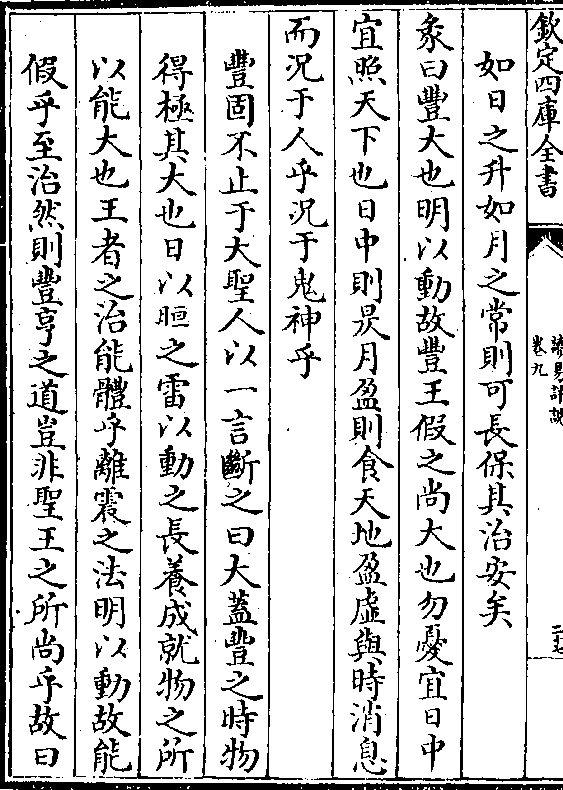 欽定四庫全書
讀易詳說
卷九
如日之升如月之常則可長保其治安矣
彖曰豐大也明以動故豐王假之尚大也勿憂宜日中
宜照天下也日中則昃月盈則食天地盈虛與時消息
而況于人乎況于鬼神乎
豐固不止于大聖人以一言斷之曰大蓋豐之時物
得極其大也日以晅之雷以動之長養成就物之所
以能大也王者之治能體乎離震之法明以動故能
假乎至治然則豐亨之道豈非聖王之所尚乎故曰